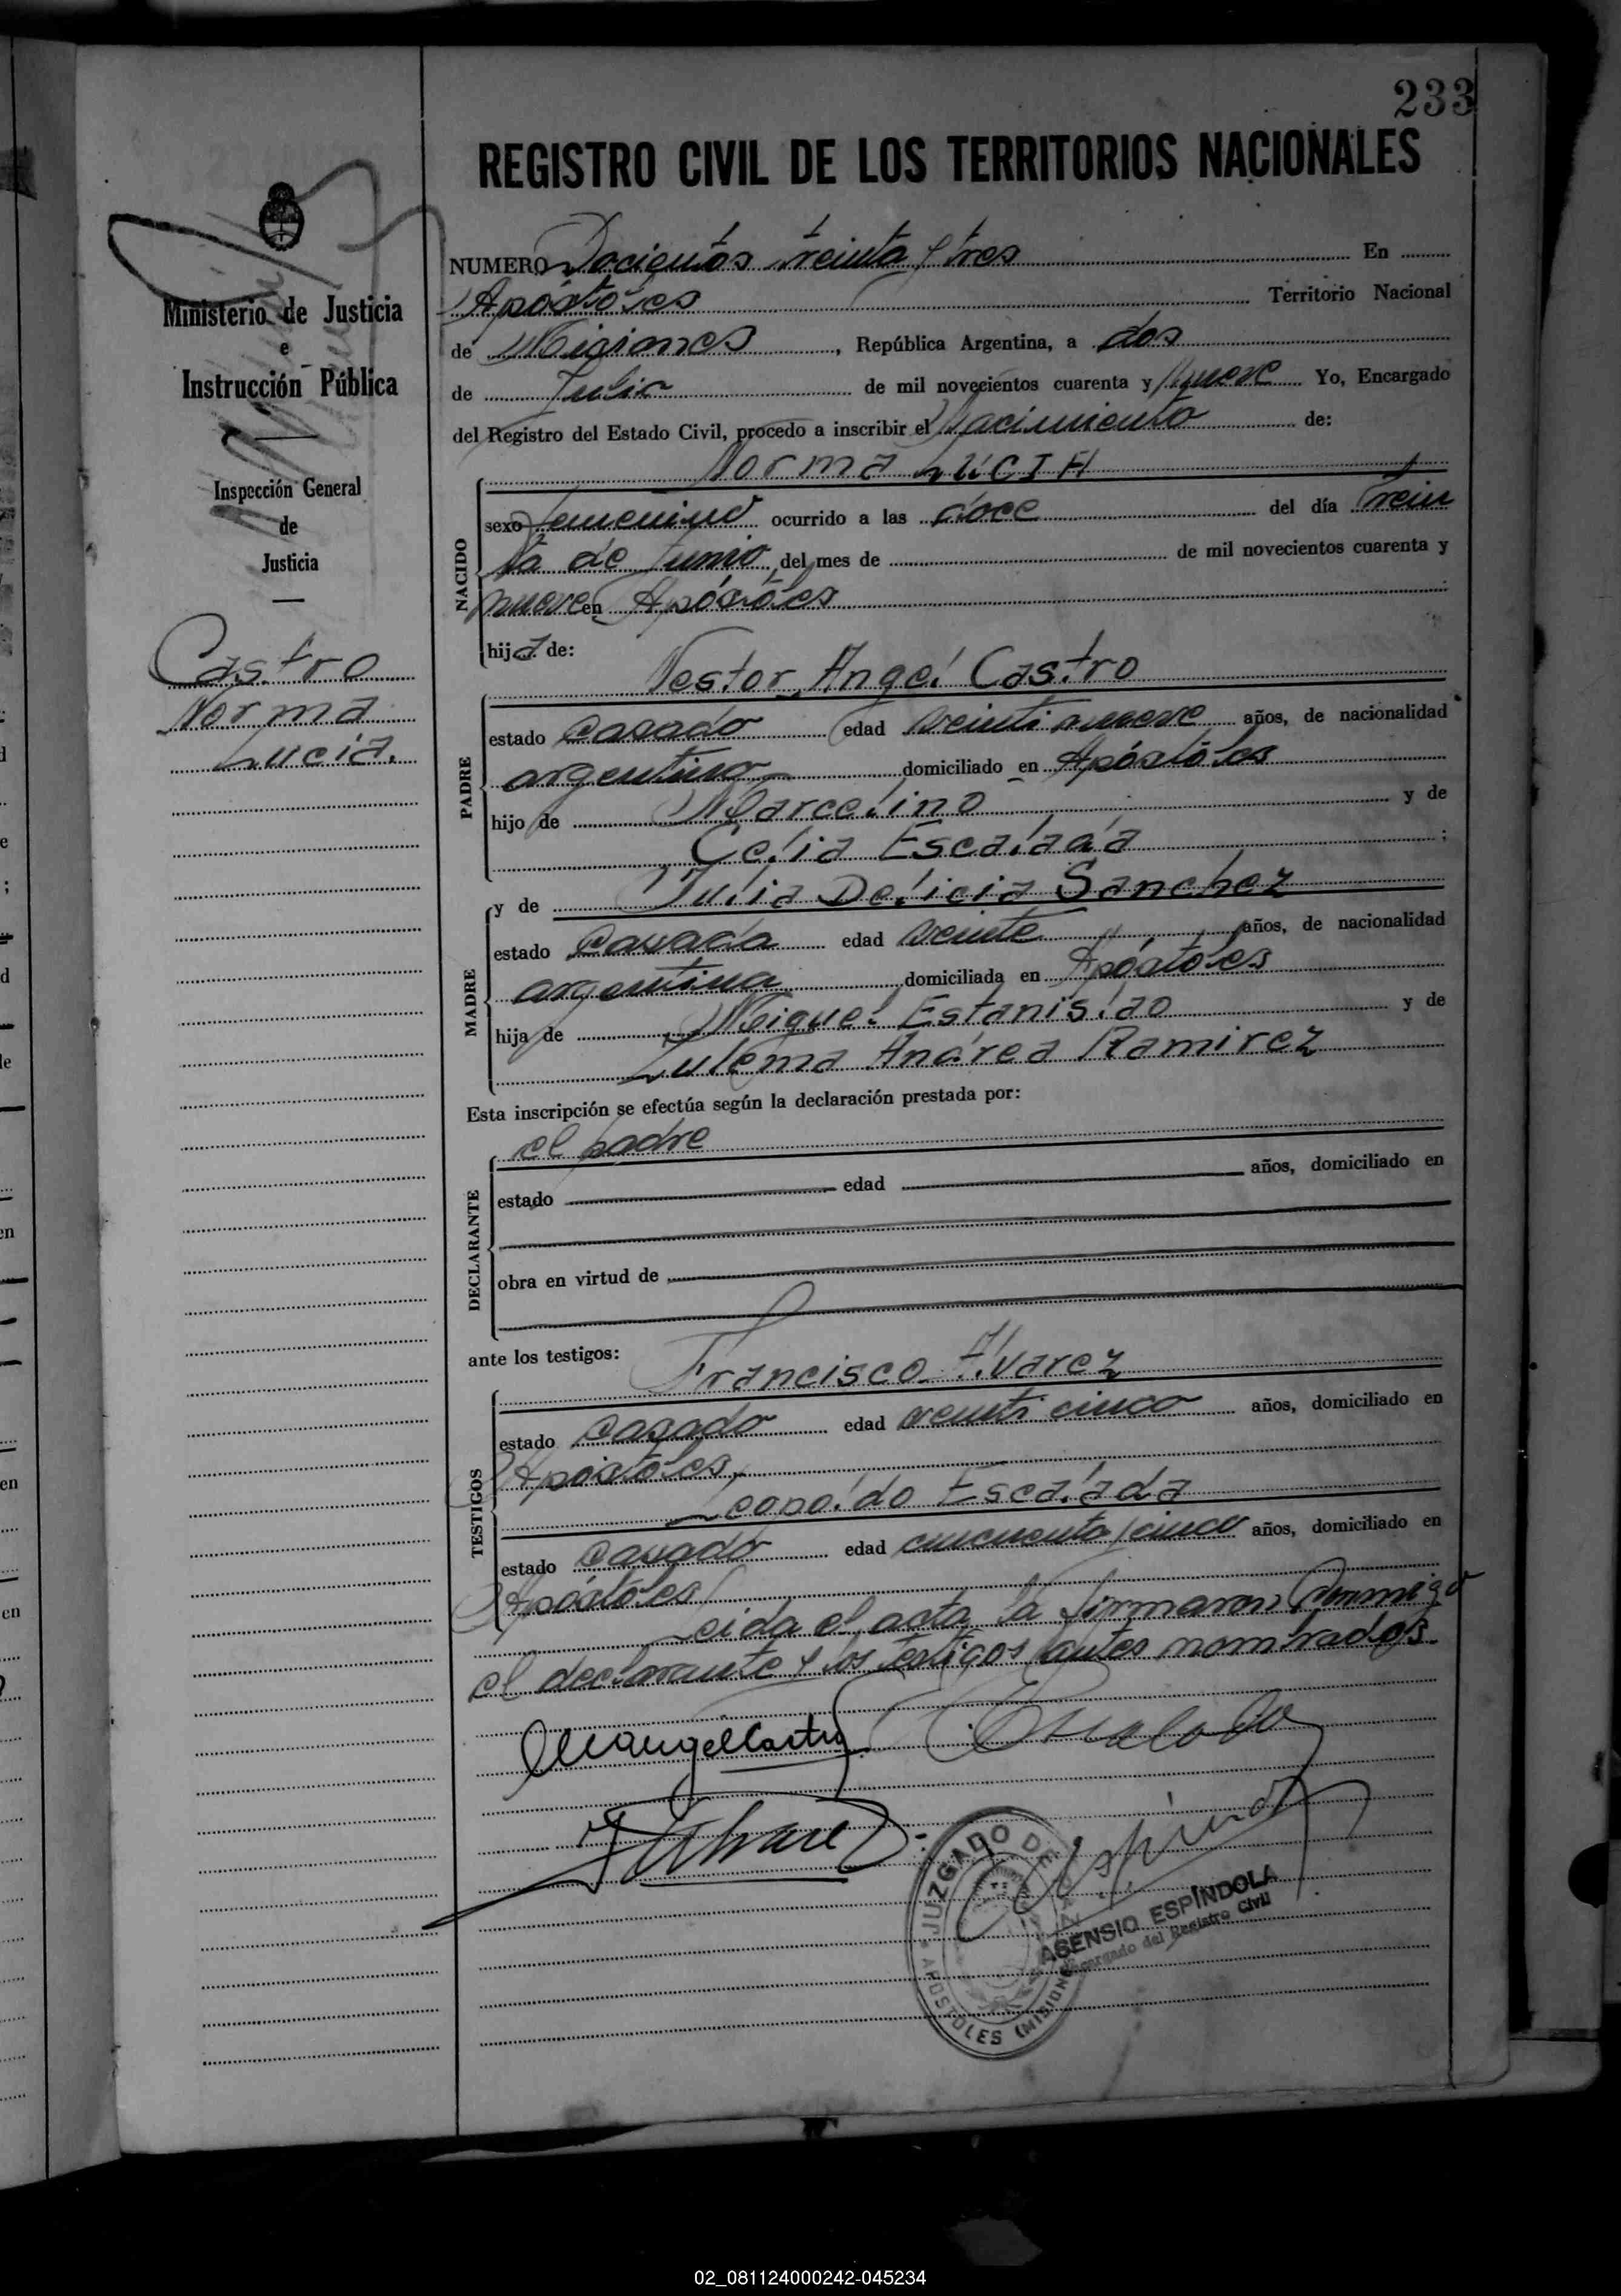 233
REGISTRO CIVIL DE LOS TERRITORIOS NACIONALES
Ministerio de Justicia
e
Instrucción Pública
Inspección General
de
Justicia
Castro
Norma
Lucia.
NUMERO Docientos treinta y tres En
Apóstoles Territorio Nacional
de Misiones, República Argentina, a dos
de Julio de mil novecientos cuarenta y nueve Yo, Encargado
del Registro del Estado Civil, procedo a inscribir el Nacimiento de:
Norma LUCIA
NACIDO
sexo femenino ocurrido a las doce del día trein
ta de Junio del mes de de mil novecientos cuarenta y
nueve en Apóstoles
hija de:
Nestor Angel Castro
PADRE
estado casado edad veinti nueve años, de nacionalidad
argentino domiciliado en Apóstoles
hijo de Marcelino y de
Celia Escalada ;
MADRE
y de Julia Delicia Sanchez
estado casada edad veinte años, de nacionalidad
argentina domiciliada en Apóstoles
hija de Miguel Estanislao y de
Zulema Andrea Ramirez
Esta inscripción se efectúa según la declaración prestada por:
el padre
DECLARANTE
estado edad años, domiciliado en
obra en virtud de
ante los testigos:
Francisco Alvarez
TESTIGOS
estado casado edad veinti cinco años, domiciliado en
Apóstoles,
Leopoldo Escalada
estado casado edad cincuenta y cinco años, domiciliado en
Apóstoles
Leida el acta, la firmaron conmigo
el declarante y los testigos antes nombrados.
JUZGADO DE PAZ
APOSTOLES (MISIONES)
ASENSIO ESPÍNDOLA
Encargado del Registro Civil
02_081124000242-045234